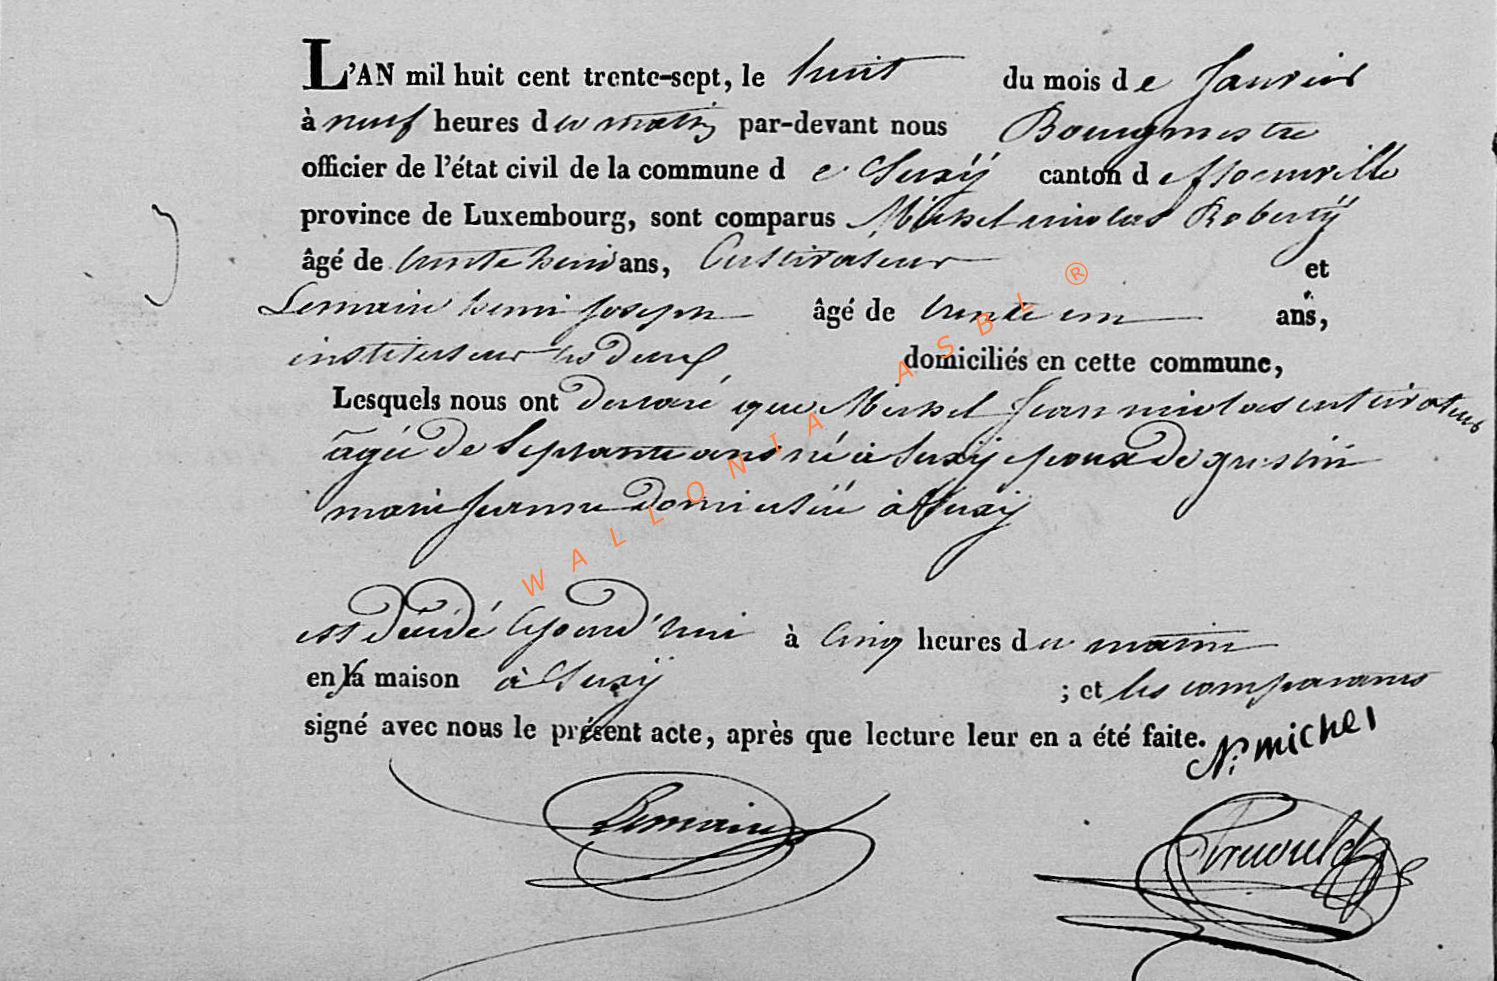 L'AN mil huit cent trente-sept, le huit du mois de Janvier
à neuf heures du matin par-devant nous Bourgmestre
officier de l'état civil de la commune de Suxÿ canton de
province de Luxembourg, sont comparus Michel nicolas Robertÿ
âgé de trente huit ans, Cultivateur et
Lemaire henri Joseph âgé de trente un ans,
instituteur tous deux domiciliés en cette commune,
Lesquels nous ont déclaré que Michel Jean nicolas cultivateur
agée de Septante ans né à Suxÿ epoux de
marie domicilié à Suxÿ
est décédé à cinq heures du matin
en la maison à Suxÿ ; et les comparants
signé avec nous le présent acte, après que lecture leur en a été faite.
N: michel
Lemaire
WALLONIA ASBL ®